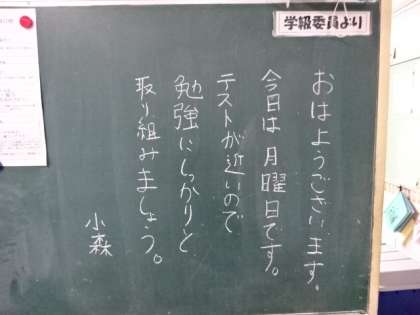 学級委員より
おはようございます。
今日は月曜日です。
テストが近いので
勉強にしっかりと
取り組みましょう。
小森